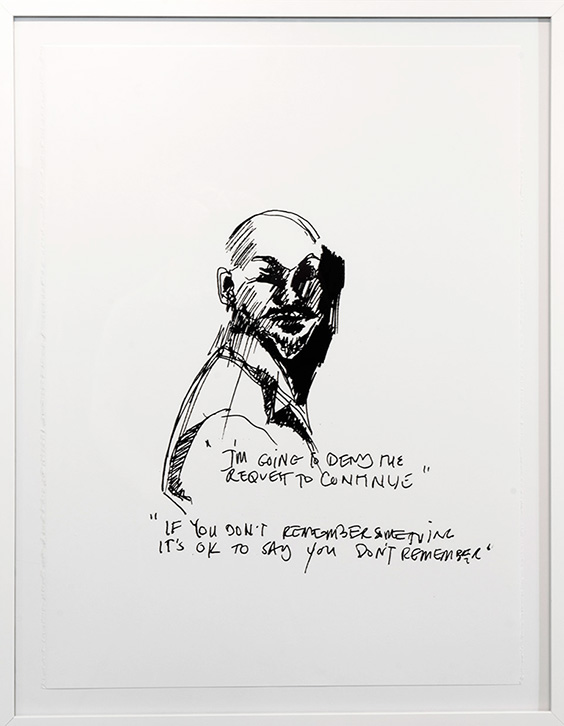 "I'M GOING TO DENY THE
REQUEST TO CONTINUE"
"IF YOU DON'T REMEMBER SOMETHING
IT'S OK TO SAY YOU DON'T REMEMBER"